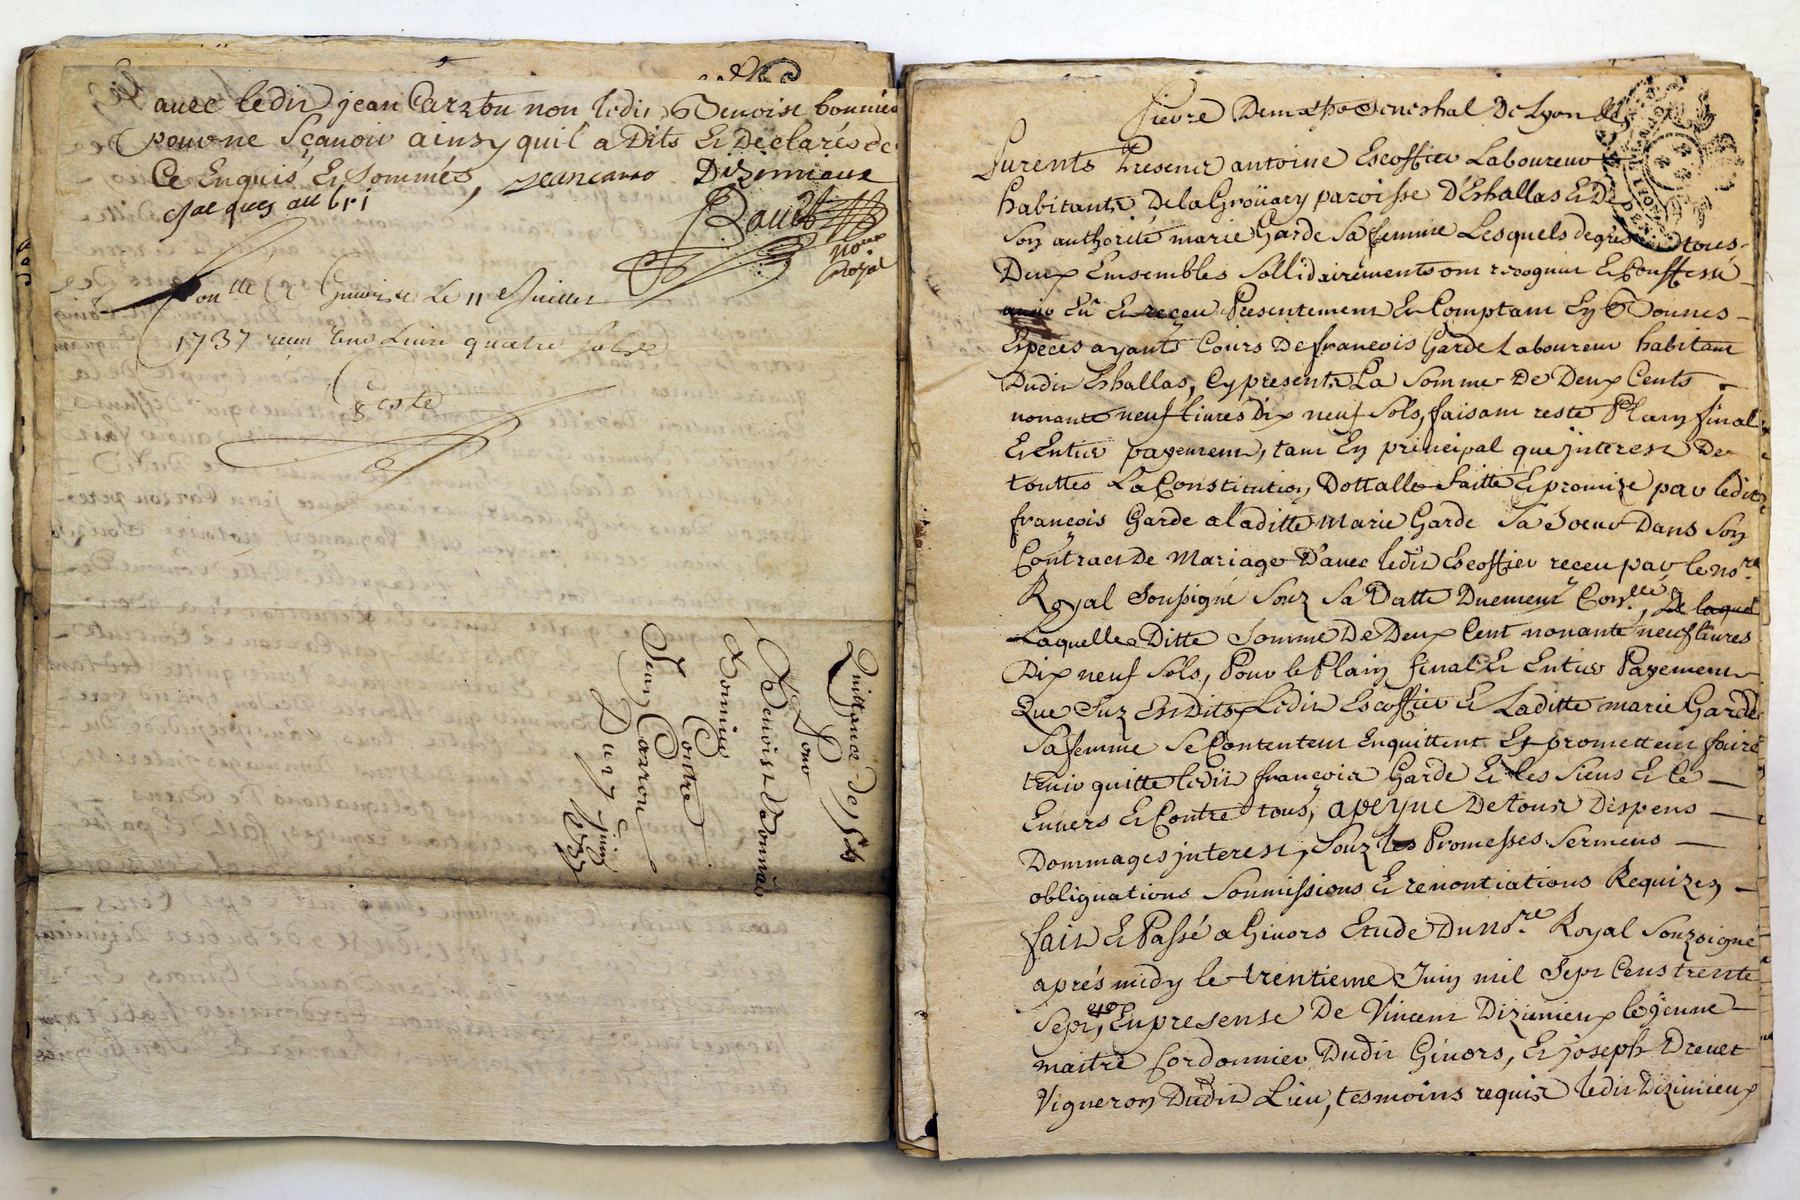 avec ledit jean Carron non ledit Benoist bonnier
pour ne sçauoir ainsy quil a Dits Et Declarés de
Ce Enquis Et Sommés, jean caron Dizimieux
Jacques aubri
nore
Royal
Conllé a Giuors Le 11 Juillet
1737 receu une Liure quatre sols
Quittance de
Pour
Benoist
Bonnier
Contre
Jean Carron
Du 27 Juin
1737
Seneshal De Lyon
furents Present antoine Escoffier Laboureur
habitants De la Groüary paroisse D'Eshallas Et De
Son authorité marie Garde Sa femme Lesquels de gré tous
Deux Ensembles Sollidairements ont recognu Et Conffessé
Eû Et receu Presentement Et Comptant En Bonnes
Especes ayants Cours De françois Garde Laboureur habitant
Dudit Eshallas, Cy present La Somme De Deux Cents
nonante neuf Liures Dix neuf Sols, faisant reste Plain final
Et Entier payement, tant En principal que jnterest De
touttes La Constitution Dottalle faitte Et promize par ledit
françois Garde a laditte Marie Garde Sa Soeur Dans Son
Contract De Mariage D'auec ledit Escoffier receu par le nore
Royal Soussigné Souz Sa Datte Duement Conllé, De laquel
Laquelle Ditte Somme De Deux Cent nonante neuf liures
Dix neuf Sols, Pour le Plain final Et Entier Payement
Que Suz Est Dits, Ledit Escoffier Et Laditte marie Garde
Sa femme Se Contentent Enquittent Et promettent faire
tenir quitte ledit françois Garde Et les Siens Et Ce
Enuers Et Contre tous, a peyne De tous Dispens
Dommages jnterest, Souz les Promesses Serments
obliguations Soumissions Et renontiations Requizes
fait Et Passé a Giuors Etude Du nore Royal Souzsigné
aprés midy le trentieme Juin mil Sept Cens trente
Sept, En presense De Vincent Dizimieux le jeune
maitre Cordonnier Dudit Giuors, Et joseph Dreuet
Vigneron Dudit Lieu, tesmoins requis ledit Dizimieux